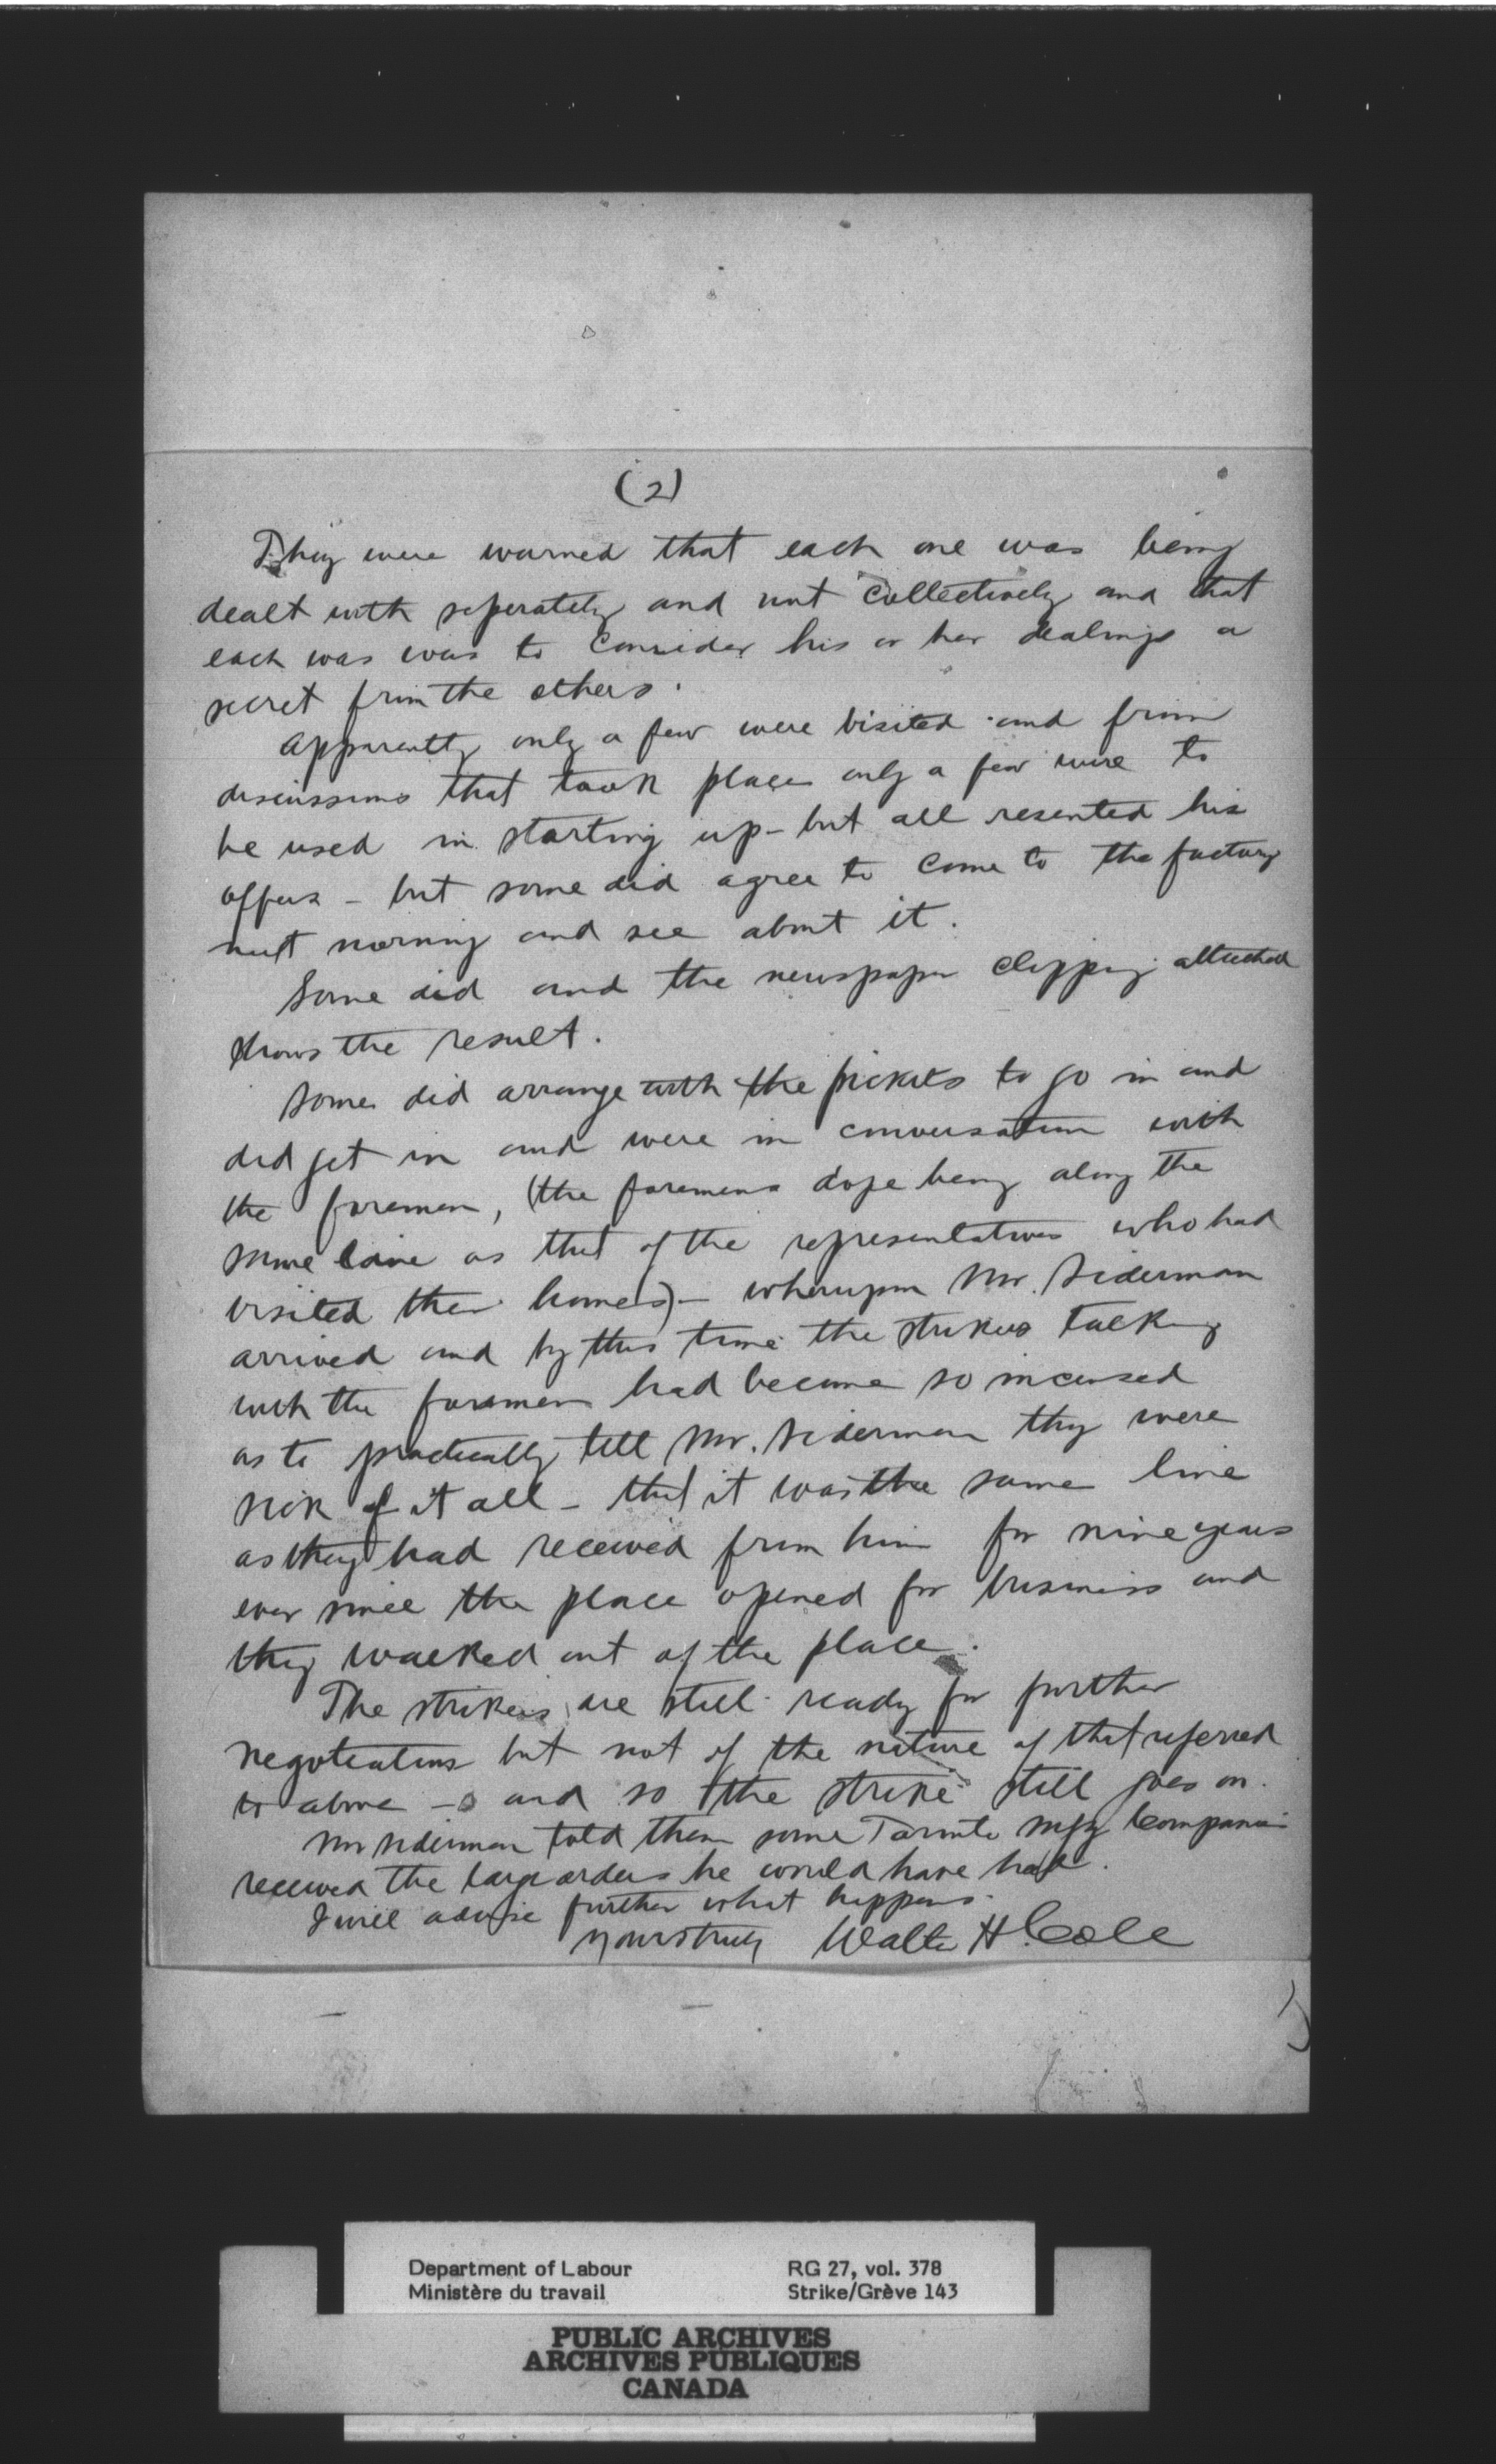 (2)
They were warned that each one was being
dealt with seperately and not collectively and that
each was was to consider his or her dealings a
secret from the others.
Apparently only a few were visited and from
discussions that took place only a few were to
be used in starting up - but all resented his
offers - but some did agree to come to the factory
next morning and see about it.
Some did and the newspaper clipping attached
shows the result.
Some did arrange with the pickets to go in and
did get in and were in conversation with
the foreman, (the foremens dope being along the
same line as that of the representatives who had
visited their homes) - whereupon Mr. Siderman
arrived and by this time the strikers talking
with the foreman had become so incensed
as to practically tell Mr. Siderman they were
sick of it all - that it was the same line
as they had received from him for nine years
ever since the place opened for business and
they walked out of the place.
The strikers are still ready for further
negotiations but not of the nature of that referred
to above - and so the strike still goes on.
Mr Siderman told them some Toronto Mfg Companies
received the large orders he would have had.
I will advise further what happens.
Yours truly Walter H Cole
Department of Labour
Ministère du travail
RG 27, vol. 378
Strike/Grève 143
PUBLIC ARCHIVES
ARCHIVES PUBLIQUES
CANADA